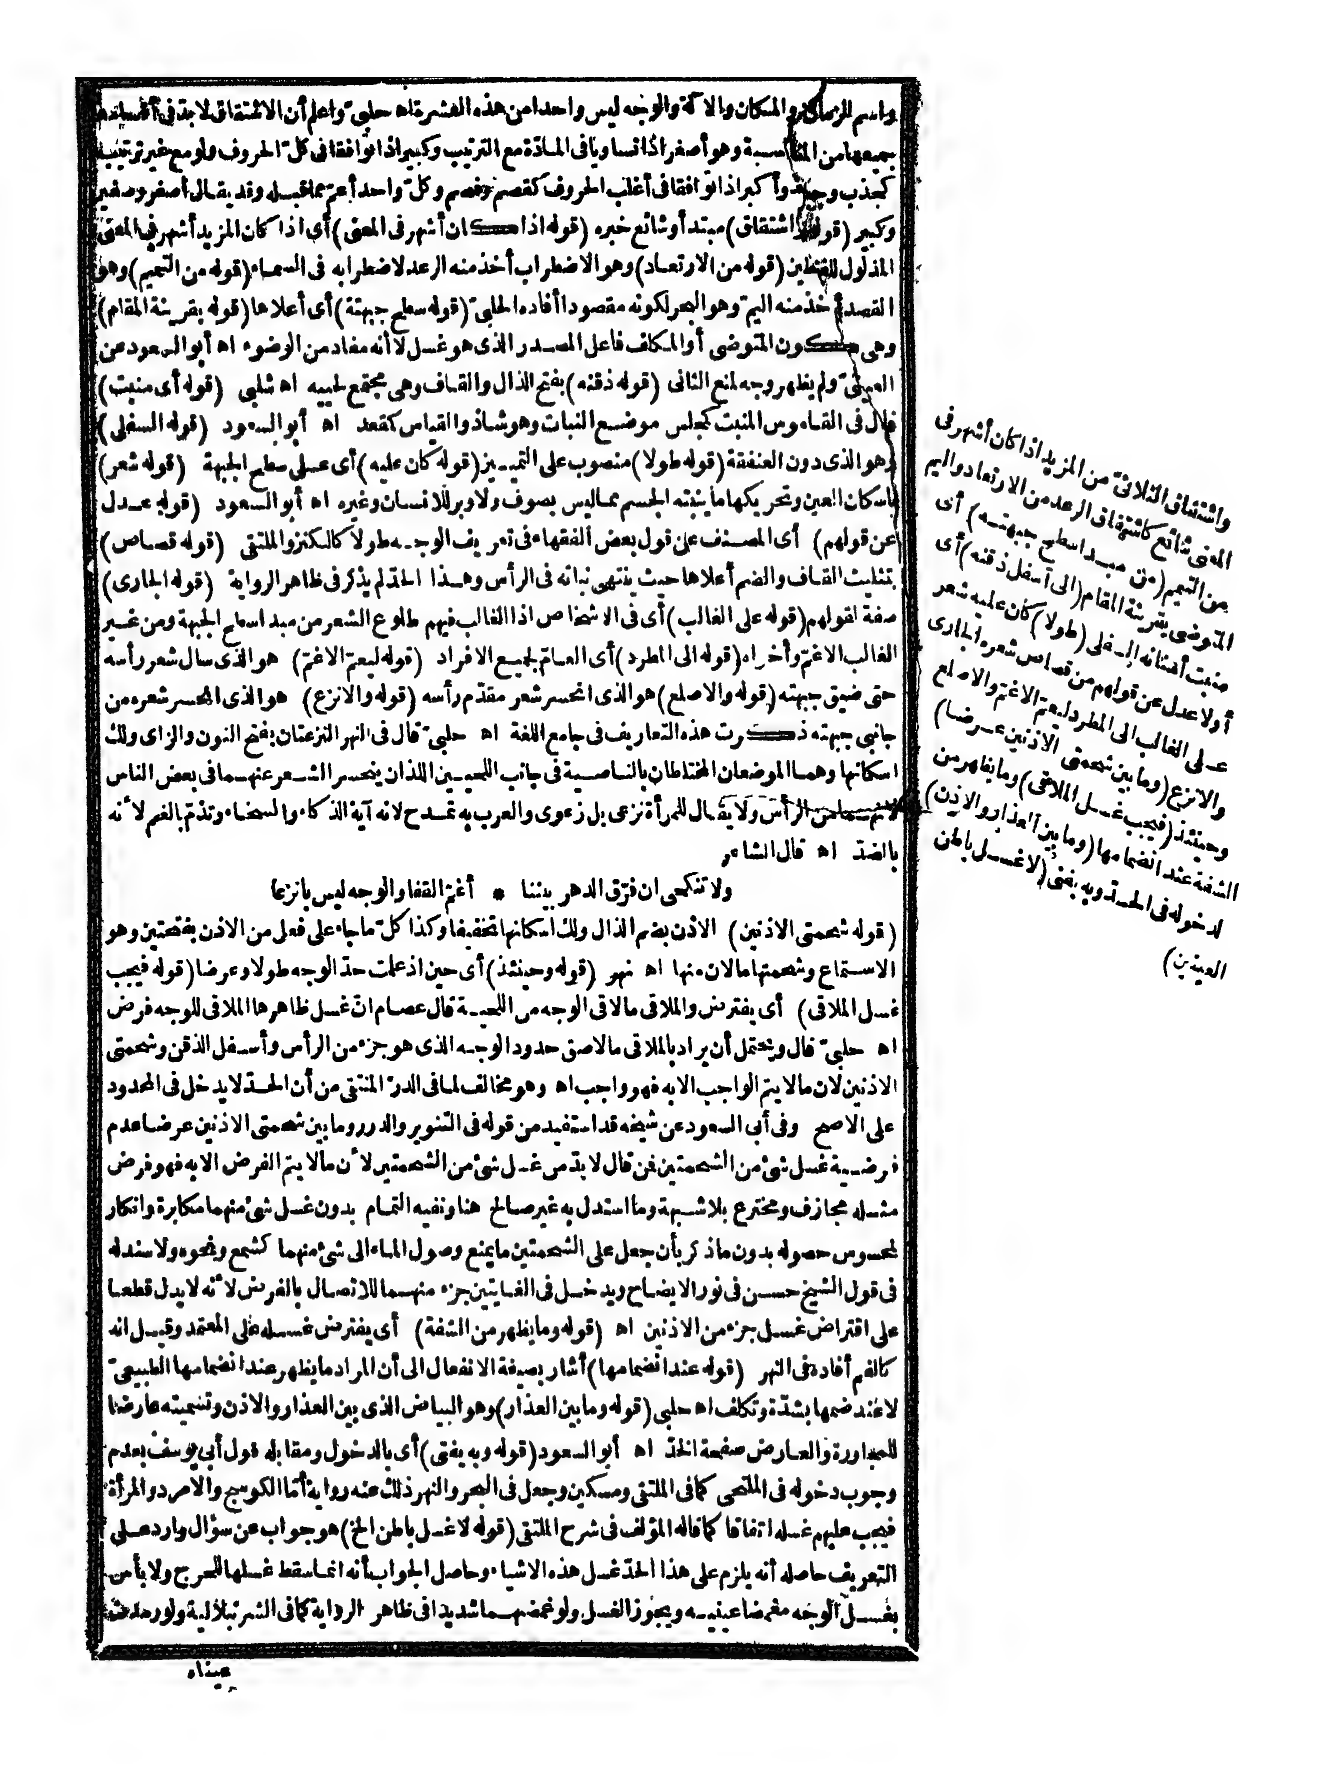 واسم الزمان والمكان والآلة والوجه ليس واحدا من هذه العشرة اه حلبىّ واعلم أن الاشتقاق لا بدّ فى أقسامه
جميعها من المناسبة وهو أصغر اذا تساويا فى المادّة مع الترتيب وكبير اذا توافقا فى كلّ الحروف ولو مع غير ترتيب
كجذب وجبذ وأكبر اذا توافقا فى أغلب الحروف كقصم وفصم وكلّ واحد أعمّ مما قبله وقد يقال أصغر وصغير
وكبير (قوله اشتقاق) مبتدأ وشائع خبره (قوله اذا كان أشهر فى المعنى) أى اذا كان المزيد أشهر فى المعنى
المدلول للفظين (قوله من الارتعاد) وهو الاضطراب أخذ منه الرعد لاضطرابه فى السماء (قوله من التيمم) وهو
القصد أخذ منه اليمّ وهو البحر لكونه مقصودا أفاده الحلبىّ (قوله سطح جبهته) أى أعلاها (قوله بقرينة المقام)
وهى كون المتوضى أو المكلف فاعل المصدر الذى هو غسل لأنه مفاد من الوضوء اه أبو السعود عن
العينىّ ولم يظهر وجه لمنع الثانى (قوله ذقنه) بفتح الذال والقاف وهى مجتمع لحييه اه شلبى (قوله أى منبت)
قال فى القاموس المنبت كمجلس موضع النبات وهو شاذ والقياس كمقعد اه أبو السعود (قوله السفلى)
وهو الذى دون العنفقة (قوله طولا) منصوب على التمييز (قوله كان عليه) أى على سطح الجبهة (قوله شعر)
باسكان العين وتحريكها ما ينبته الجسم مما ليس بصوف ولا وبر للانسان وغيره اه أبو السعود (قوله عدل
عن قولهم) أى المصنف على قول بعض الفقهاء فى تعريف الوجه طولا كالكنز والملتقى (قوله قصاص)
بتثليث القاف والضم أعلاها حيث ينتهى نباته فى الرأس وهذا الحدّ لم يذكر فى ظاهر الرواية (قوله الجارى)
صفة لقولهم (قوله على الغالب) أى فى الاشخاص اذ الغالب فيهم طلوع الشعر من مبدا سطح الجبهة ومن غير
الغالب الاغمّ وأخراه (قوله الى المطرد) أى العامّ لجميع الافراد (قوله ليعمّ الاغمّ) هو الذى سال شعر رأسه
حتى ضيق جبهته (قوله والاصلع) هو الذى انحسر شعر مقدّم رأسه (قوله والانزع) هو الذى انحسر شعره من
جانبى جبهته ذكرت هذه التعاريف فى جامع اللغة اه حلبىّ قال فى النهر النزعتان بفتح النون والزاى ولك
اسكانها وهما الموضعان المحتاطان بالناصية فى جانب الجبين اللذان ينحسر الشعر عنهما فى بعض الناس
لانهما من الرأس ولا يقال للمرأة نزعى بل زعوى والعرب به تمدح لانه آية الذكاء والسخاء وتذمّ بالغم لأنه
بالضدّ اه قال الشاعر
ولا تنكحى ان فرّق الدهر بيننا * أغمّ القفا والوجه ليس بأنزعا
(قوله شحمتى الاذنين) الاذن بضم الذال ولك اسكانها تخفيفا وكذا كلّ ما جاء على فعل من الاذن بفتحتين وهو
الاستماع وشحمتها مالان منها اه نهر (قوله وحينئذ) أى حين اذ علمت حدّ الوجه طولا وعرضا (قوله فيجب
غسل الملاقى) أى يفترض والملاقى ما لاقى الوجه من اللحية قال عصام انّ غسل ظاهرها الملاقى للوجه فرض
اه حلبىّ قال ويحتمل أن يراد بالملاقى ما لاصق حدود الوجه الذى هو جزء من الرأس وأسفل الذقن وشحمتى
الاذنين لان ما لا يتم الواجب الا به فهو واجب اه وهو مخالف لما فى الدرّ المنتقى من أن الحدّ لا يدخل فى المحدود
على الاصح وفى أبى السعود عن شيخه قد استفيد من قوله فى التنوير والدرر وما بين شحمتى الاذنين عرضا عدم
فرضية غسل شئ من الشحمتين فمن قال لا بدّ من غسل شئ من الشحمتين لأن ما لا يتم الفرض الا به فهو فرض
مثله مجازف ومخترع بلا شبهة وما استدل به غير صالح هنا ونفيه التمام بدون غسل شئ منهما مكابرة وانكار
لمحسوس حصوله بدون ما ذكر بأن جعل على الشحمتين ما يمنع وصول الماء الى شئ منهما كشمع ونحوه ولا سند له
فى قول الشيخ حسن فى نور الايضاح ويدخل فى الغايتين جزء منهما للاتصال بالفرض لأنه لا يدل قطعا
على افتراض غسل جزء من الاذنين اه (قوله وما يظهر من الشفة) أى يفترض غسله على المعتمد وقيل انه
كالفم أفاده فى النهر (قوله عند انضمامها) أشار بصيغة الانفعال الى أن المراد ما يظهر عند انضمامها الطبيعىّ
لا عند ضمها بشدّة وتكلف اه حلبى (قوله وما بين العذار) وهو البياض الذى بين العذار والاذن وتسميته عارضا
للمجاورة والعارض صفحة الخدّ اه أبو السعود (قوله وبه يفتى) أى بالدخول ومقابله قول أبى يوسف بعدم
وجوب دخوله فى الملتحى كما فى الملتقى ومسكين وجعل فى البحر والنهر ذلك عنه رواية أمّا الكوسج والامرد والمرأة
فيجب عليهم غسله اتفاقا كما قاله المؤلف فى شرح الملتقى (قوله لا غسل باطن الخ) هو جواب عن سؤال وارد على
التعريف حاصله أنه يلزم على هذا الحدّ غسل هذه الاشياء وحاصل الجواب أنه انما سقط غسلها للحرج ولا بأس
بغسل الوجه مغمضا عينيه ويجوز الغسل ولو غمضهما شديدا فى ظاهر الرواية كما فى الشرنبلالية ولو رمدت
عيناه
واشتقاق الثلاثىّ من المزيد اذا كان أشهر فى
المعنى شائع كاشتقاق الرعد من الارتعاد واليم
من التيمم (من مبدا سطح جبهته) أى
المتوضى بقرينة المقام (الى أسفل ذقنه) أى
منبت أسنانه السفلى (طولا) كان عليه شعر
أولا عدل عن قولهم من قصاص شعره الجارى
على الغالب الى المطرد ليعمّ الاغمّ والاصلع
والانزع (وما بين شحمتى الاذنين عرضا)
وحينئذ (فيجب غسل الملاقى) وما يظهر من
الشفة عند انضمامها (وما بين العذار والاذن)
لدخوله فى الحدّ وبه يفتى (لا غسل باطن
العينين)